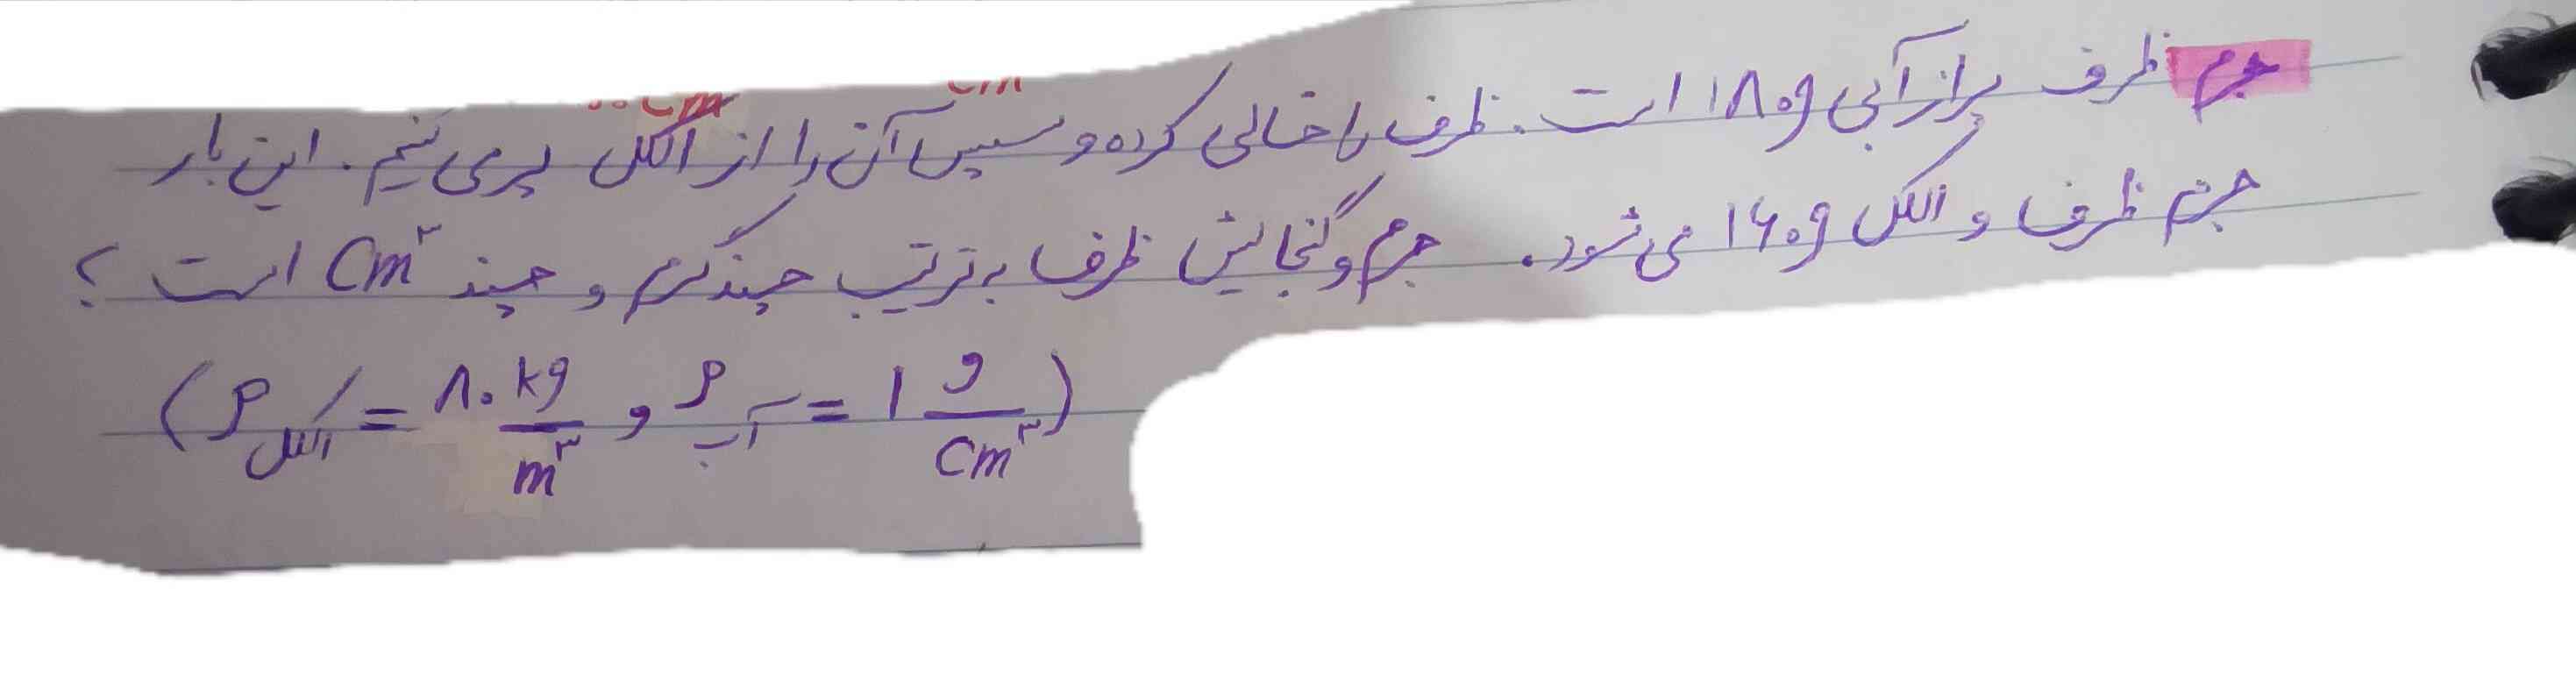 جرم ظرف پر از آبی ۱۸۰g است. ظرف را خالی کرده و سپس آن را از الکل پر می کنیم. این بار
جرم ظرف و الکل ۱۶۰g می شود. جرم و گنجایش ظرف به ترتیب چند گرم و چند Cm³ است ؟
(ρ الکل = ۸۰ kg/m³ و ρ آب = ۱ g/Cm³)